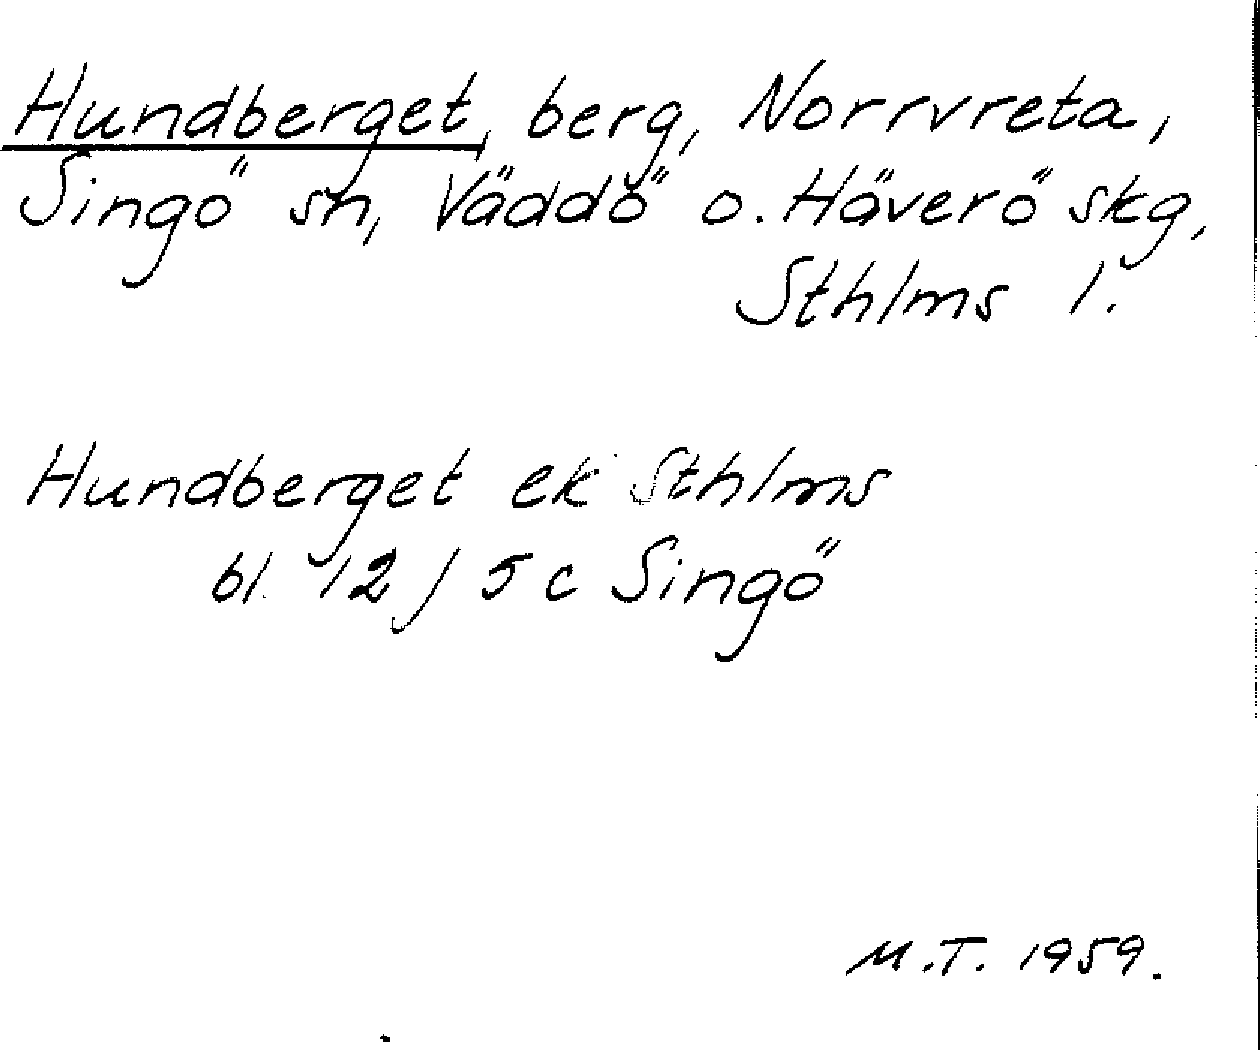 Hundberget, berg, Norrvreta,
Singö sn, Väddö o. Häverö skg,
Sthlms l.
Hundberget ek Sthlms
bl. 12 j 5 c Singö
M.T. 1959.